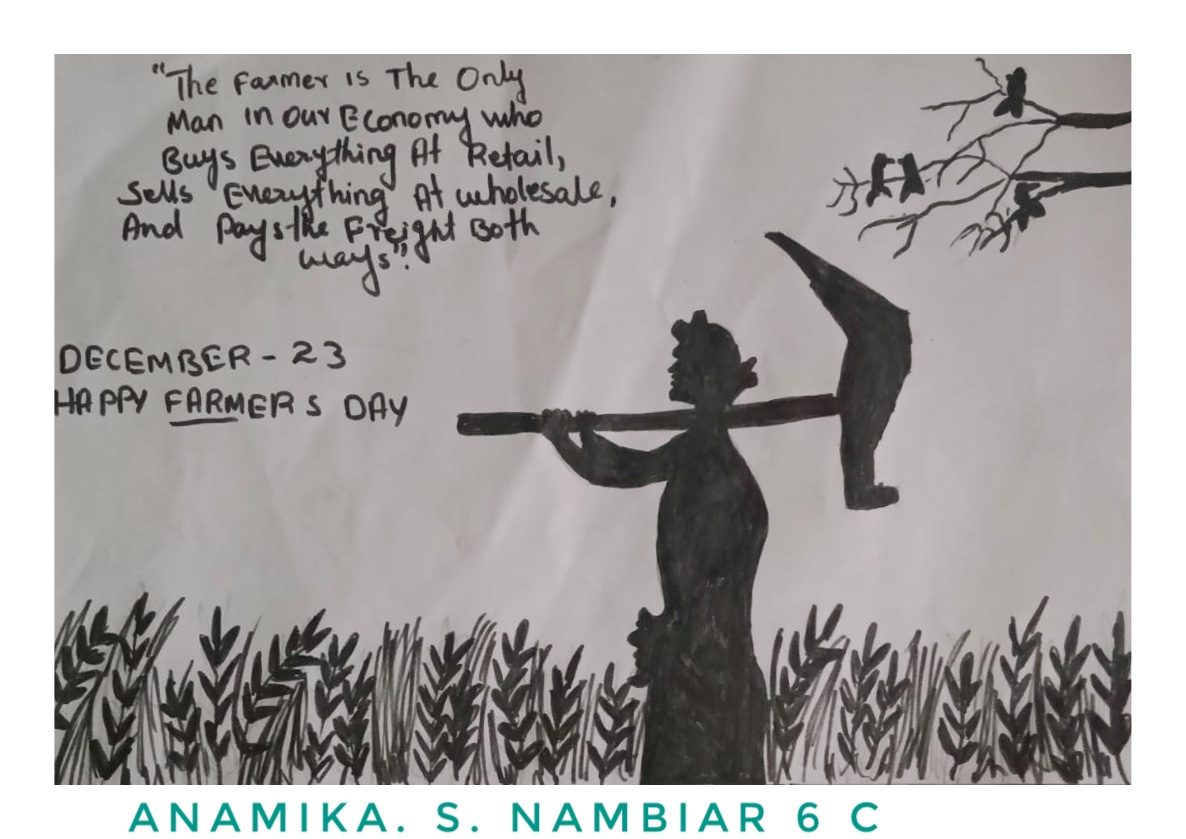 "The Farmer is The Only
Man in our Economy who
Buys Everything At Retail,
Sells Everything At wholesale,
And Pays the Freight Both
ways".
DECEMBER - 23
HAPPY FARMERS DAY
ANAMIKA. S. NAMBIAR 6 C